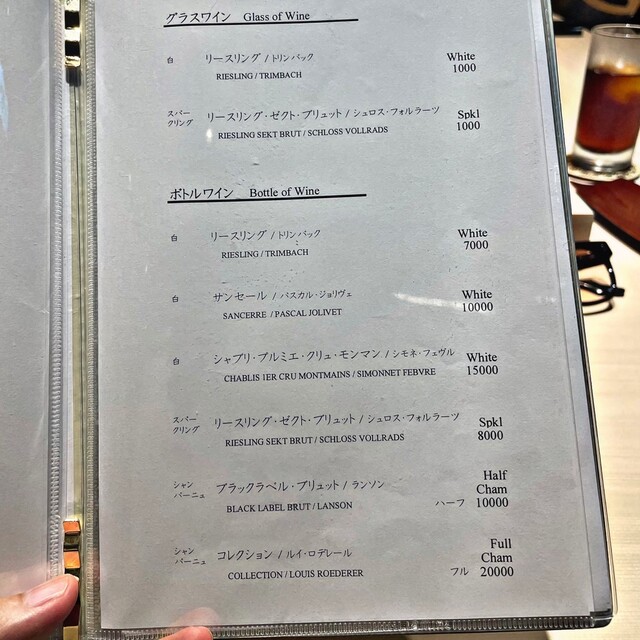 グラスワイン Glass of Wine
白 リースリング / トリンバック White
RIESLING / TRIMBACH 1000
スパークリング リースリング・ゼクト・ブリュット / シュロス・フォルラーツ Spkl
RIESLING SEKT BRUT / SCHLOSS VOLLRADS 1000
ボトルワイン Bottle of Wine
白 リースリング / トリンバック White
RIESLING / TRIMBACH 7000
白 サンセール / パスカル・ジョリヴェ White
SANCERRE / PASCAL JOLIVET 10000
白 シャブリ・プルミエ・クリュ・モンマン / シモネ・フェヴル White
CHABLIS 1ER CRU MONTMAINS / SIMONNET FEBVRE 15000
スパークリング リースリング・ゼクト・ブリュット / シュロス・フォルラーツ Spkl
RIESLING SEKT BRUT / SCHLOSS VOLLRADS 8000
シャンパーニュ ブラックラベル・ブリュット / ランソン Half Cham
BLACK LABEL BRUT / LANSON ハーフ 10000
シャンパーニュ コレクション / ルイ・ロデレール Full Cham
COLLECTION / LOUIS ROEDERER フル 20000